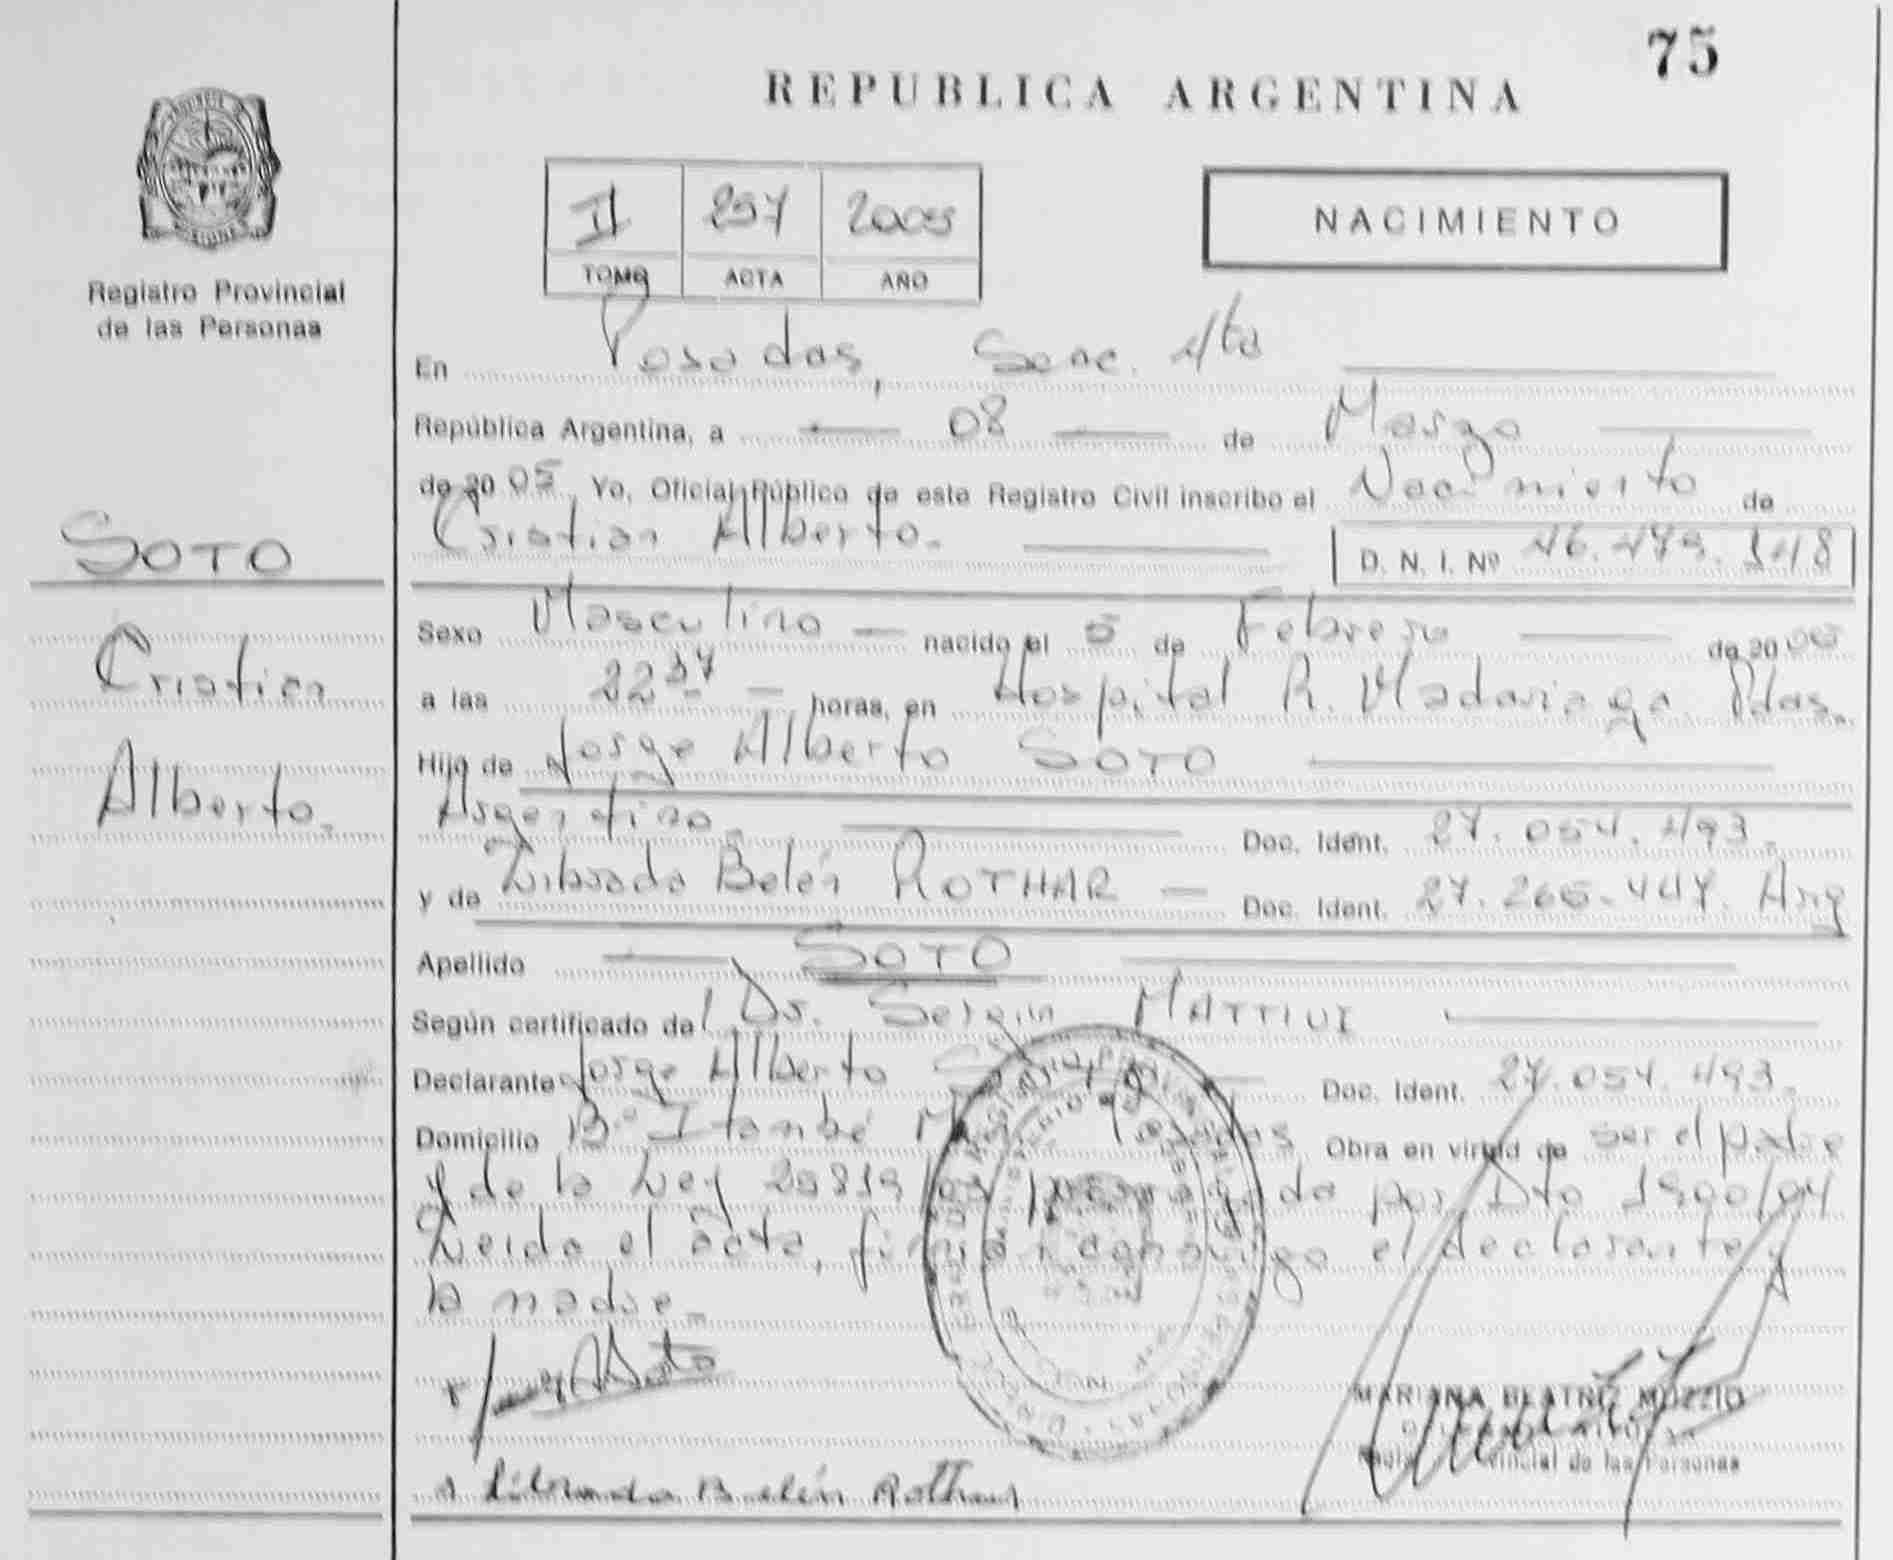 75
REPUBLICA ARGENTINA
II 297 2005
TOMO ACTA AÑO
NACIMIENTO
Registro Provincial
de las Personas
En Posadas, Secc. 4ta
República Argentina, a 08 de Marzo
de 20 05 Yo, Oficial Público de este Registro Civil inscribo el Nacimiento de
Cristian Alberto. D. N. I. Nº 46.479.148
SOTO
Cristian
Alberto.
Sexo Masculino nacido el 5 de Febrero de 20 05
a las 22 37 horas, en Hospital R. Madariaga Pdas.
Hijo de Jorge Alberto SOTO
Argentino Doc. Ident. 27.054.493.
y de Librada Belén ROTHAR Doc. Ident. 27.265.447. Arg
Apellido SOTO
Según certificado del Dr. Sergio
Declarante Jorge Alberto Doc. Ident. 27.054.493.
Domicilio Bº Itambé Obra en virtud de ser el padre
y de la Ley por Dto 1900/04
Leida el acta, el declarante y
la madre.
Librada Belén Rothar
MARIANA BEATRIZ MUZZIO
Provincial de las Personas